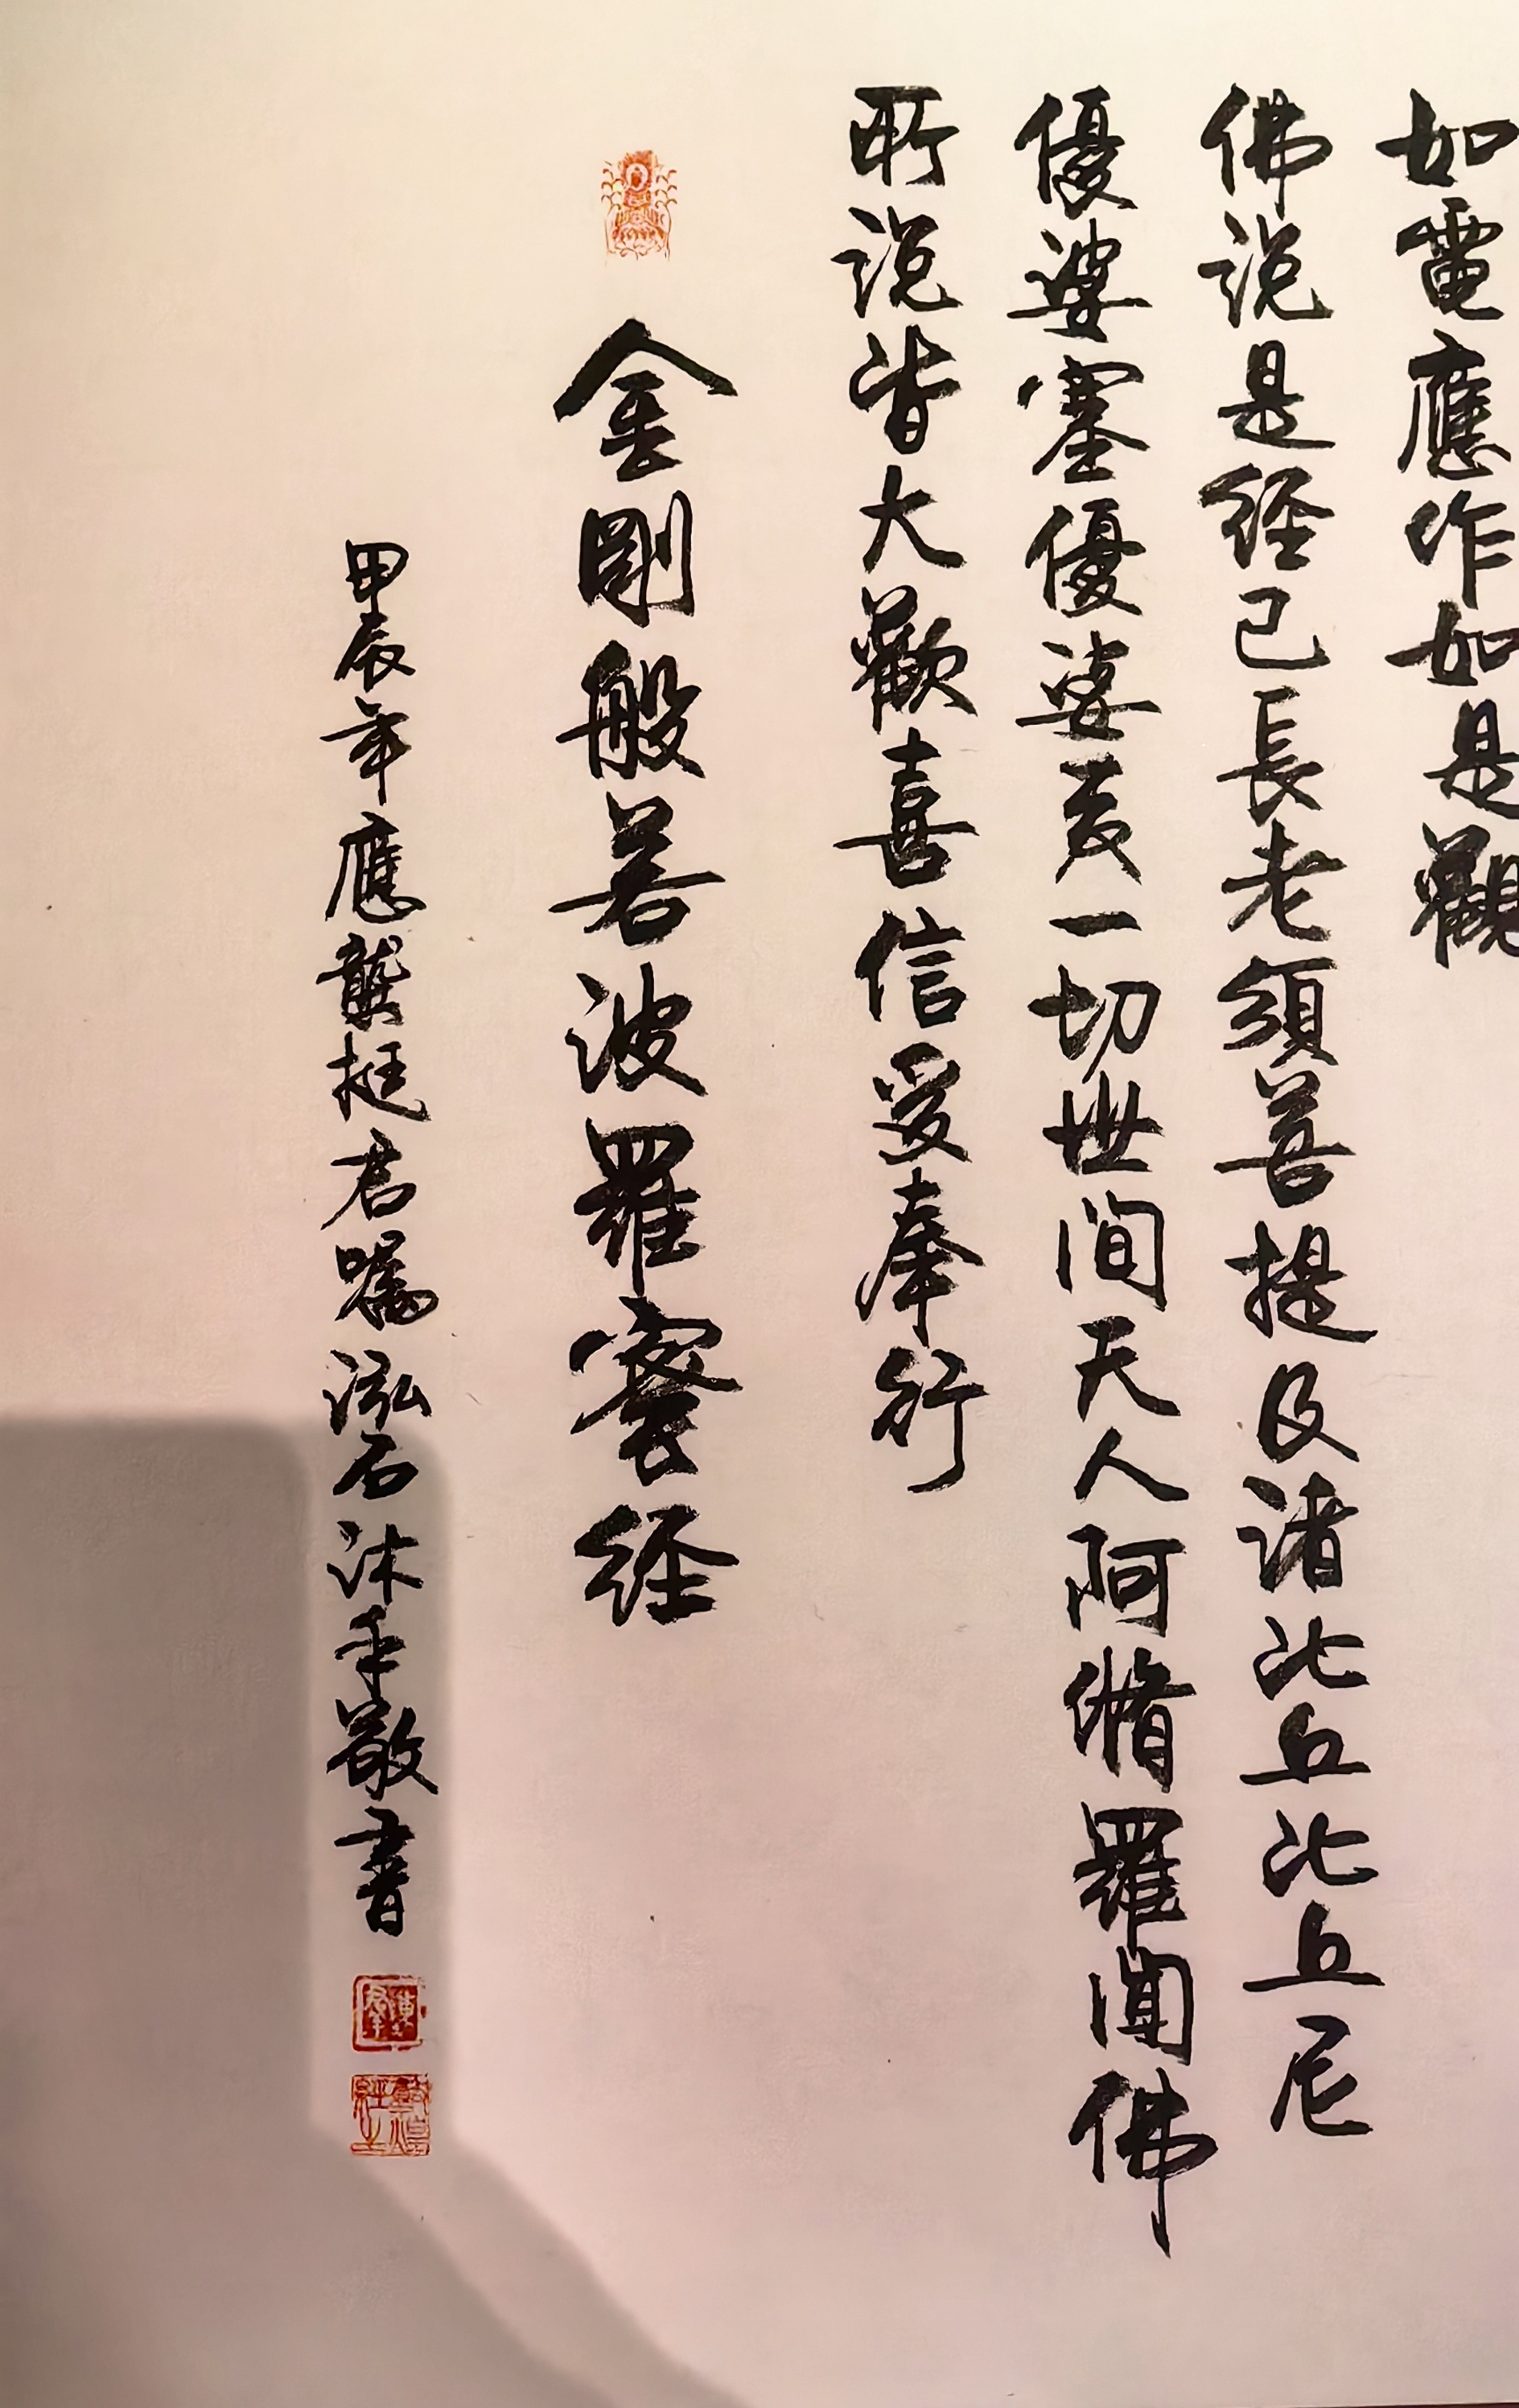 如電應作如是觀
佛说是经已長老須菩提及諸比丘比丘尼
優婆塞優婆夷一切世间天人阿脩羅闻佛
所说皆大歡喜信受奉行
金剛般若波羅蜜经
甲辰年應龔挺君囑泓石沐手敬書